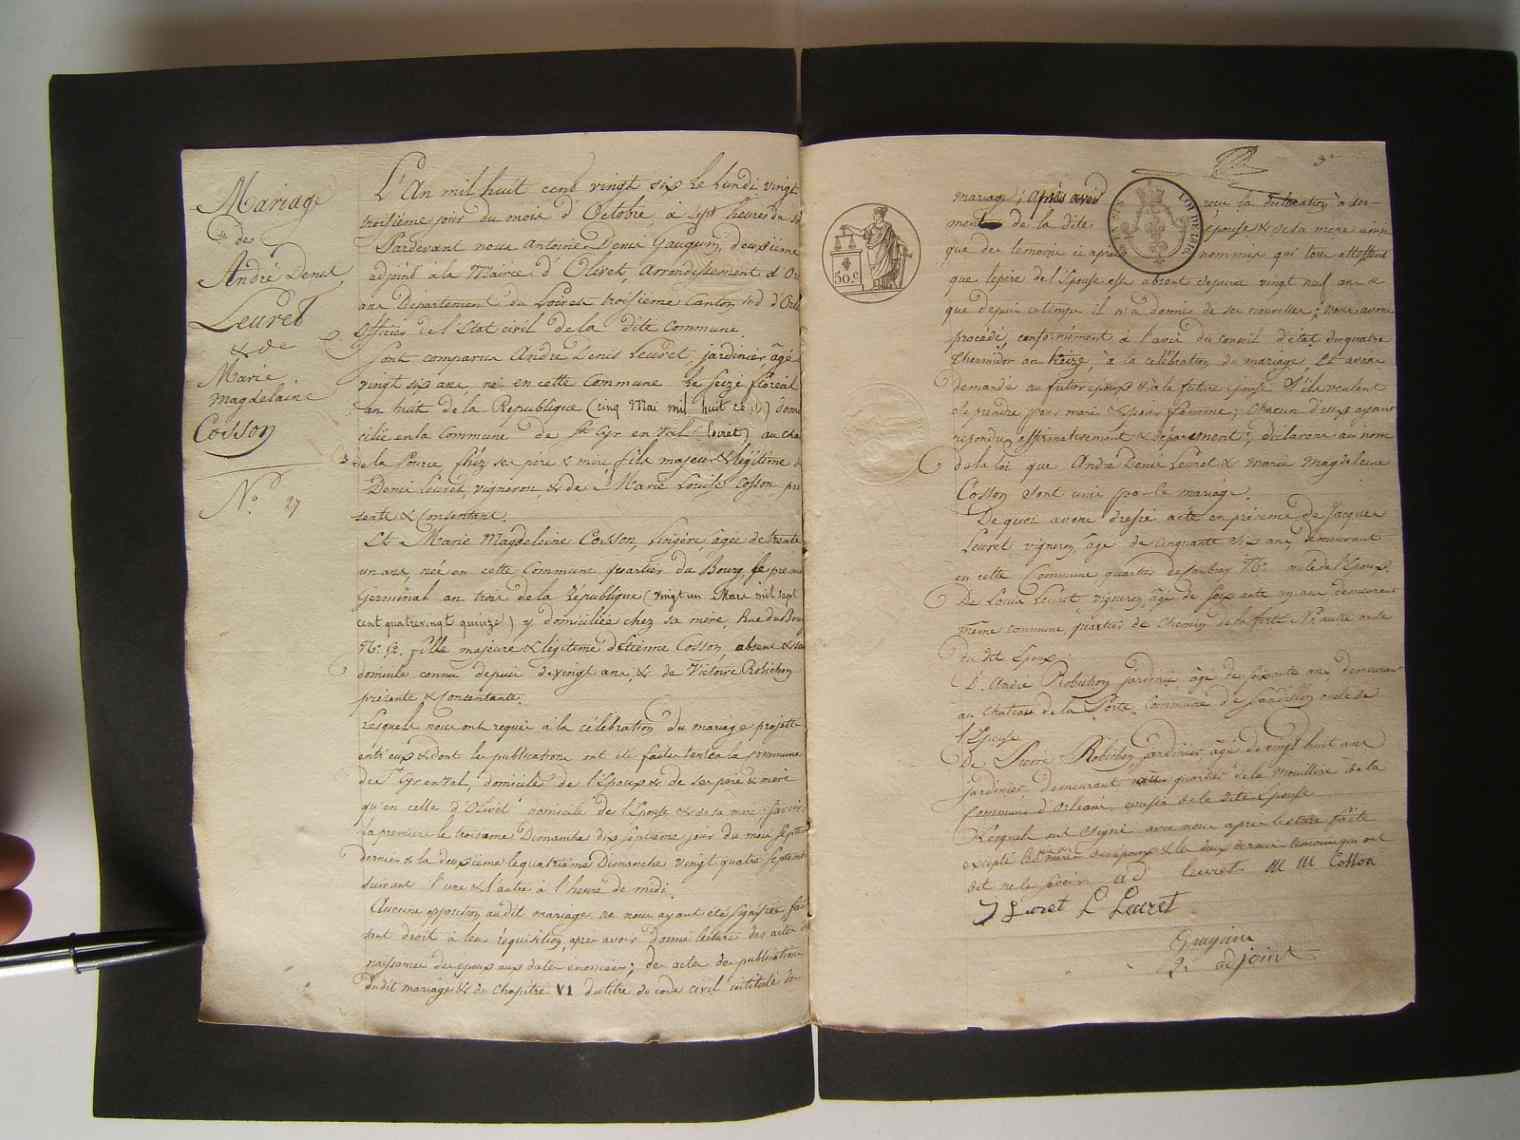 Mariage
de
André Denis
Leuret
& de
Marie
magdelaine
Cosson
N.° 27
L'An mil huit cent vingt six Le Lundi vingt
troisième jour du mois d'Octobre, à sept heures du
Pardevant nous Antoine Denis Gauguin, deuxième
adjoint à la Mairie d'Olivet, Arrondissement d'Or
ans Departement du Loiret troisième Canton sud d'Orl
Officier de l'Etat civil de la dite Commune.
Sont comparus André Denis Leuret, jardinier, âgé
vingt six ans né en cette Commune le Seize floréal
an huit de la Republique (cinq Mai mil huit ce t) domi
cilié en la Commune de St Cyr en Val (Loiret) au
de la Source, chez ses père & mère, fils majeur & légitime
Denis Leuret, vigneron, & de Marie Louise Cosson pré
sente & Consentant.
Et Marie Magdeleine Cosson, lingère, âgée de trente
un ans, née en cette Commune quartier du Bourg, le premier
Germinal an trois de la République (vingt un Mars mil sept
cent quatrevingt quinze) y domiciliée chez sa mère, Rue du Bourg
N.° 52. fille majeure & légitime d'Etienne Cosson, absent & sans
domicile connu depuis vingt ans, & de Victoire Robichon
présente & Consentante.
Lesquels nous ont requis à la célébration du mariage projetté
entr'eux & dont les publications ont été faites tant en la commune
de St Cyr en Val, domicile de l'Epoux & de ses père & mère
qu'en celle d'Olivet domicile de l'Epouse & de sa mère Savoir
La première le troisième Dimanche dix septième jour du mois Septembre
dernier & la deuxième le quatrième Dimanche vingt quatre Septembre
suivant l'une & l'autre à l'heure de midi.
Aucune opposition audit mariage ne nous ayant été signifiée, fai
sant droit à leur réquisition, après avoir donné lecture des actes de
naissance des epoux aux dates énoncées; des actes de publications
dudit mariage & du Chapitre VI du titre du code civil intitulé du
3e
mariage; après avoir reçu la déclaration à ser-
ment de la dite épouse & de sa mère ainsi
que des temoins ci après nommés qui tous attestent
que le père de l'Epouse est absent depuis vingt neuf ans &
que depuis ce temps il n'a donné de ses nouvelles; Nous avons
procédé, conformément à l'avis du Conseil d'état du quatre
Thermidor an treize, à la celébration du mariage, Et avons
demandé au futur epoux & à la future epouse S'ils veulent
se prendre pour mari & pour femme; chacun d'eux ayant
répondu affirmativement & séparement; déclarons au nom
de la loi que André Denis Leuret & Marie Magdeleine
Cosson sont unis par le mariage.
De quoi avons dressé acte en présence de Jacques
Leuret vigneron, âgé de cinquante six ans, demeurant
en cette Commune quartier oncle de l'Epoux,
De Louis Leuret vigneron, âgé de soixante ans demeurant
même commune quartier du Chemin de la ferté N.° oncle
du dit Epoux.
D'André Robichon jardinier âgé de soixante ans demeurant
au chateau de la Porte Commune de Sandillon oncle de
l'Epouse
De Pierre Robichon, jardinier, âgé de vingt huit ans
jardinier, demeurant quartier de la Mouillère de la
Commune d'Orléans, cousin de la dite Epouse
Lesquels ont signé avec nous après lecture faite
excepté les mères des epoux & les deux derniers temoins qui ont
dit ne le savoir AD leuret M M Cosson
J Leuret L Leuret
Gauguin
2e adjoint
50.c
LOI DE 1816